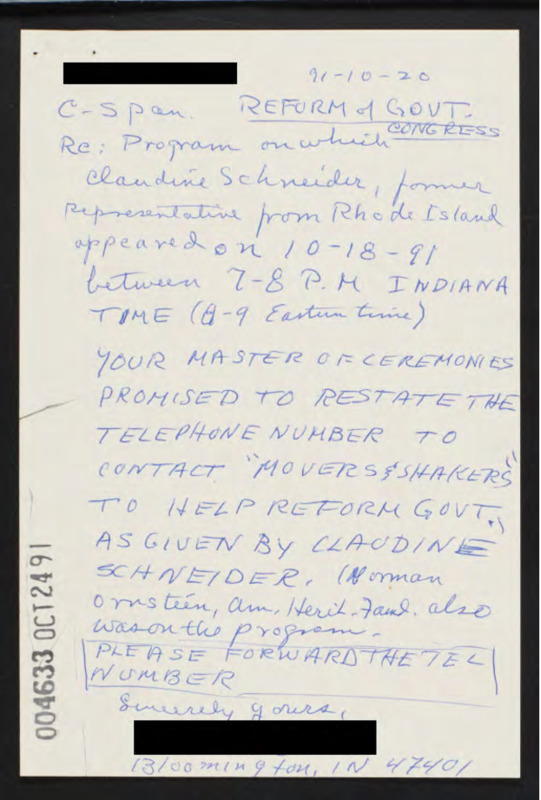 91-10-20
C-Span. REFORM of GOVT.
CONGRESS
Re: Program on which
Claudine Schneider, former
Representative from Rhode Island
appeared on 10-18-91
between 7-8 P.M INDIANA
TIME (8-9 Eastern time)
YOUR MASTER OF CEREMONIES
PROMISED TO RESTATE THE
TELEPHONE NUMBER TO
CONTACT "MOVERS & SHAKERS"
TO HELP REFORM GOVT.,
AS GIVEN BY CLAUDINE
SCHNEIDER. (Norman
Ornstein, Am. Herit. Found. also
was on the program.
PLEASE FORWARD THE TEL
NUMBER
Sincerely yours,
Bloomington, IN 47401
004633 OCT 24 91